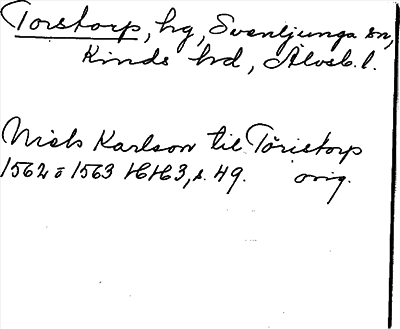 Torstorp, hg, Svenljunga sn,
Kinds hd, Älvsb. l.
Niels Karlson til Töristorp
1562 o 1563 HH3, s. 49. orig.